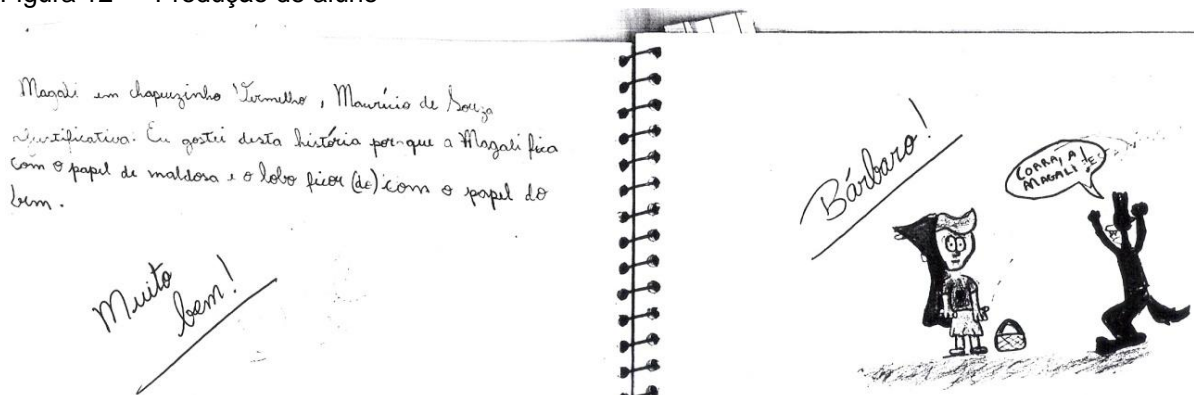 Figura 12 — Produção do aluno
Magali em chapeuzinho Vermelho, Maurício de Souza
Justificativa: Eu gostei desta história porque a Magali fica
com o papel de maldosa e o lobo ficor (de) com o papel do
bem.
Muito
bem!
Bárbaro!
CORRA, A
MAGALI!